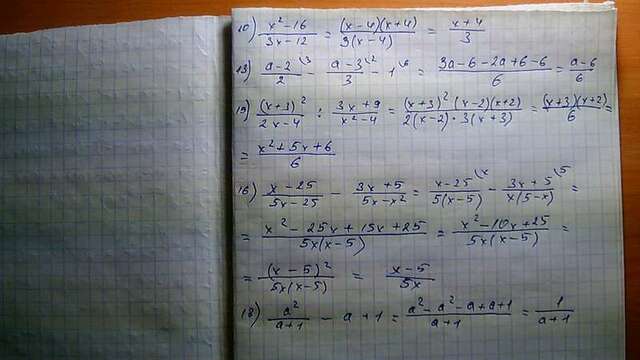 10) (x²-16)/(3x-12) = ((x-4)(x+4))/(3(x-4)) = (x+4)/3
13) (a-2)/2 \3 - (a-3)/3 \2 - 1 \6 = (3a-6-2a+6-6)/6 = (a-6)/6
19) (x+3)²/(2x-4) : (3x+9)/(x²-4) = ((x+3)²(x-2)(x+2))/(2(x-2)·3(x+3)) = ((x+3)(x+2))/6 =
= (x²+5x+6)/6
16) (x-25)/(5x-25) - (3x+5)/(5x-x²) = (x-25)/(5(x-5)) \x - (3x+5)/(x(5-x)) \5 =
= (x²-25x+15x+25)/(5x(x-5)) = (x²-10x+25)/(5x(x-5)) =
= (x-5)²/(5x(x-5)) = (x-5)/(5x)
18) a²/(a+1) - a+1 = (a²-a²-a+a+1)/(a+1) = 1/(a+1)